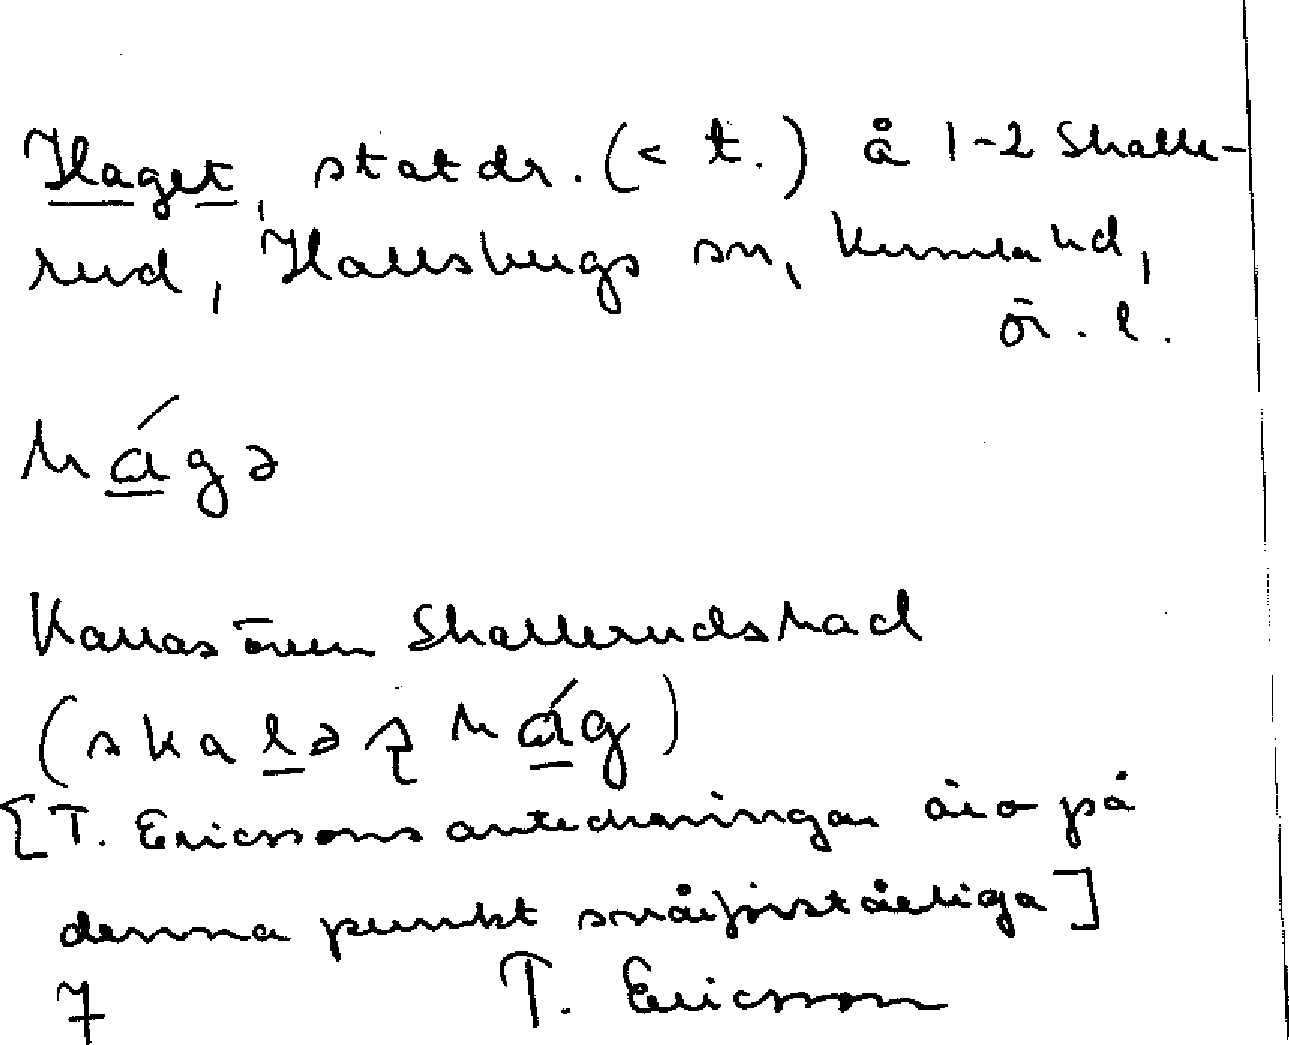 Haget, statdr. (< t.) å 1-2 Skalle-
rud, Hallsbergs sn, Kumla hd,
Ör. l.
hágə
Kallas även Skallerudshad
(skaləʂ hág)
[T. Ericssons anteckningar äro på
denna punkt svårförståeliga]
7 T. Ericsson